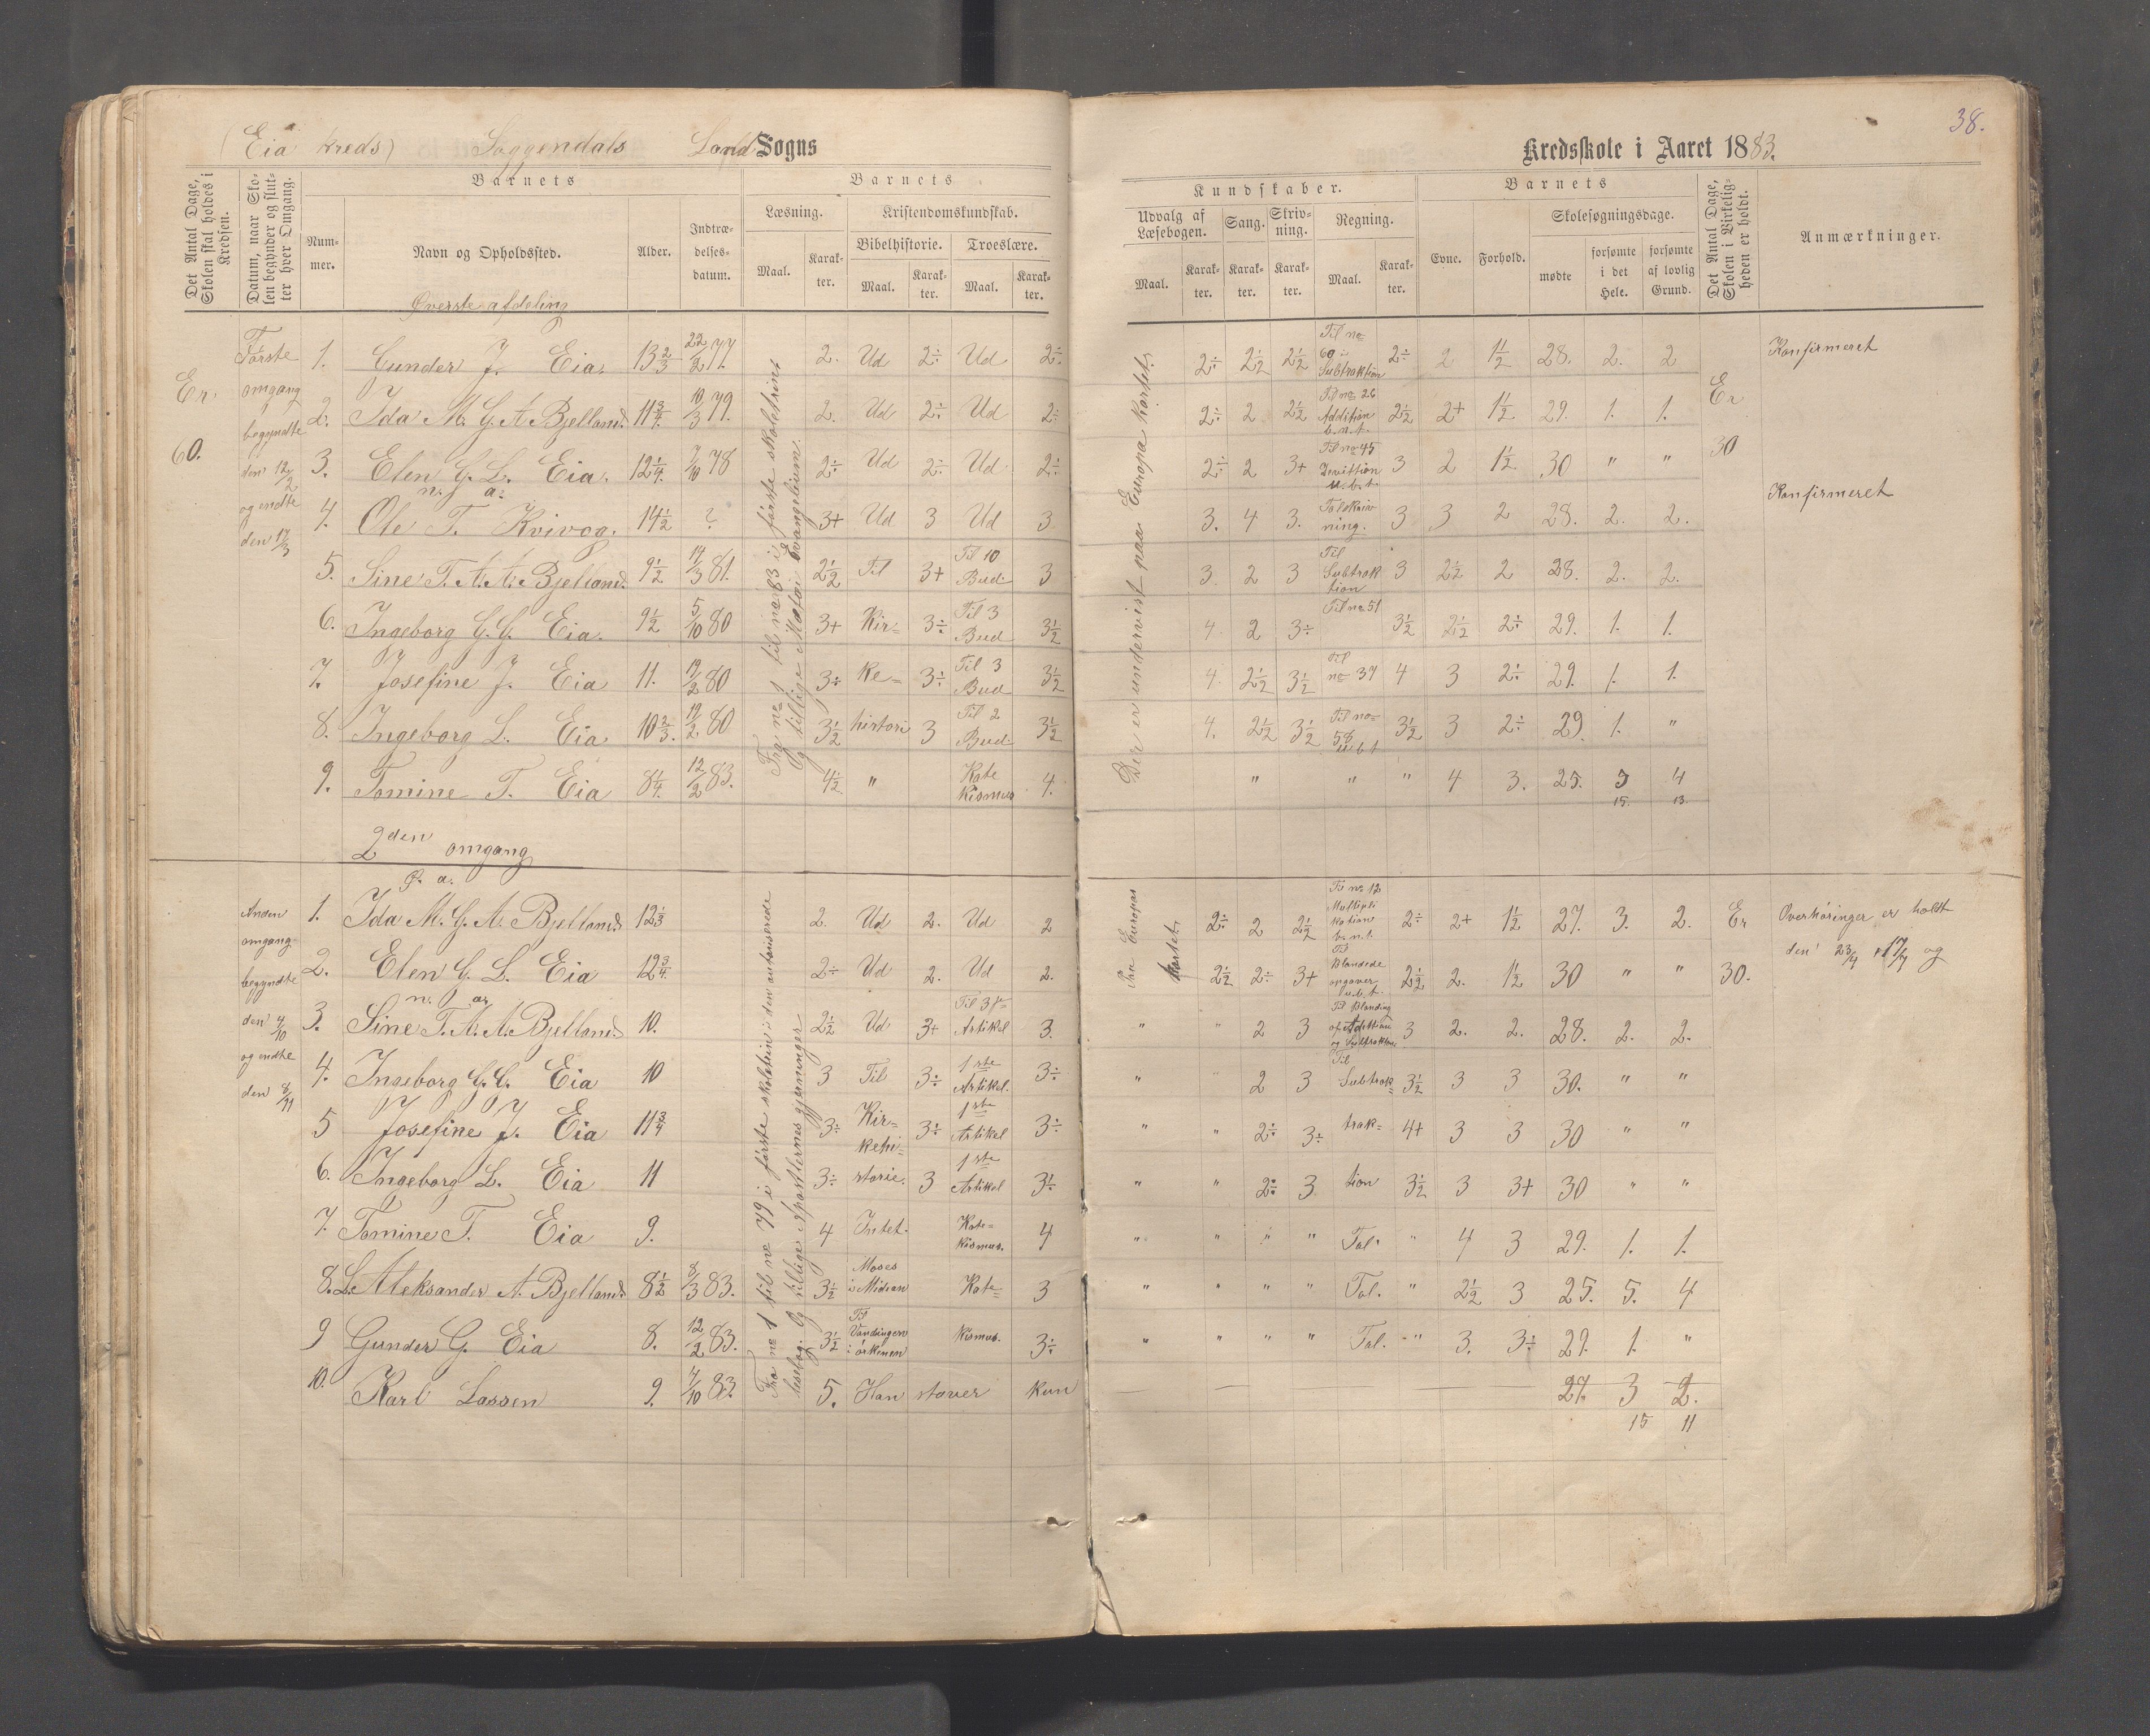 38.
(Eia kreds) Soggendals Land Sogns Kredsskole i Aaret 1883.
Det Antal Dage, Skolen skal holdes i Kredsen.
Datum, naar Skolen begynder og slutter hver Omgang.
Barnets
Nummer.
Navn og Opholdssted.
Alder.
Indtrædelsesdatum.
Barnets
Læsning.
Maal.
Karakter.
Kristendomskundskab.
Bibelhistorie.
Maal.
Karakter.
Troeslære.
Maal.
Karakter.
Kundskaber.
Udvalg af Læsebogen.
Maal.
Karakter.
Sang.
Karakter.
Skrivning.
Karakter.
Regning.
Maal.
Karakter.
Barnets
Evne.
Forhold.
Skolesøgningsdage.
mødte
forsømte i det Hele.
forsømte af lovlig Grund.
Det Antal Dage, Skolen i Virkeligheden er holdt.
Anmærkninger.
Øverste afdeling
Er 60.
Første omgang begyndte den 12/2 og endte den 17/3
Fra no 1 til no 83 i første skoletrint
Og tillige Matæi Evangelium.
Der er undervist paa Europa kartet.
1. Gunder J. Eia. 13 2/3 22/2 77. 2. Ud 2÷ Ud 2÷ 2÷ 2 1/2 2 1/2 Til no 60 i Subtraktion 2÷ 2 1 1/2 28. 2. 2 Konfirmeret
2. Ida M. G. A. Bjelland. 11 3/4. 10/3 79. 2. Ud 2÷ Ud 2÷ 2÷ 2 2 1/2 Til no 26 Addition b.n.t. 2 1/2 2+ 1 1/2 29. 1. 1. Er
3. Elen G. L. Eia. 12 1/4. 7/10 78 2÷ Ud 2÷ Ud 2÷ 2÷ 2 3+ Til no 45 u.b.t. 3 2 1 1/2 30 " " 30
n. a.
4. Ole T. Kvivog. 14 1/2 ? 3+ Ud 3 Ud 3 3. 4 3. 3 3 2 28. 2. 2. Konfirmeret
5. Sine T. A. A. Bjelland. 9 1/2 14/3 81. 2 1/2 Til 3+ Til 10 Bud 3 3. 2 3 Til Subtraktion 3 2 1/2 2 28. 2. 2.
6. Ingeborg G. G. Eia. 9 1/2 5/10 80 3+ Kir= 3÷ Til 3 Bud 3 1/2 4. 2 3÷ Til no 51 3 1/2 2 1/2 2÷ 29. 1. 1.
7. Josefine J. Eia 11. 19/2 80 3÷ ke= 3÷ Til 3 Bud 3 1/2 4. 2 1/2 3 1/2 Til no 37 4 3 2÷ 29. 1. 1.
8. Ingeborg L. Eia 10 2/3. 19/2 80 3 1/2 histori 3 Til 2 Bud 3 1/2 4. 2 1/2 3 1/2 Til no 58 u.b.t 3 1/2 3 2÷ 29. 1. "
9. Tomine T. Eia 8 1/4. 12/2 83. 4 1/2 " Kate kismus 4. " " " 4 3. 25. 5 4
15. 13
2den omgang
Ø. a.
Anden omgang begyndte den 4/10 og endte den 8/11
Fra no 1 til no 79 i første skoletrin i den autoriserede
læsebog. Og tillige Apostlernes gjerninger
Paa Europas kartet.
1. Ida M. G. A. Bjelland 12 1/3 2. Ud 2. Ud 2 2÷ 2 2 1/2 Til no 12 Multiplikation b.n.t. 2÷ 2+ 1 1/2 27. 3. 2. Er Overhøringer er holdt
2. Elen G. L. Eia 12 3/4. 2÷ Ud 2. Ud 2. 2 1/2 2÷ 3+ Til Blandede opgaver u.b.t. 2 1/2 2. 1 1/2 30 " " 30. den 23/4 17/9 og
n. a.
3. Sine T. A. A. Bjelland 10. 2 1/2 Ud 3+ Til 3die Artikel 3. " " 2 3 Til Blanding af Addition og Subtraktion 3 2. 2. 28. 2. 2.
4. Ingeborg G. G. Eia 10 3 Til 3÷ 1ste Artikel. 3÷ " " 2 3 Til Subtrak= 3 1/2 3 3 30. " "
5 Josefine J. Eia 11 3/4 3÷ Kir= kehi= 3÷ 1ste Artikel 3÷ " " 2÷ 3÷ trak= 4+ 3 3 30 " "
6. Ingeborg L. Eia 11 3÷ storie. 3 1ste Artikel 3 1/2 " " 2÷ 3 tion 3 1/2 3 3+ 30 " "
7. Tomine T. Eia 9. 4 Intet. Kate= kismus. 4 " " " " Tal. " 4 3 29. 1. 1.
8. L. Aleksander A. Bjelland. 8 1/2 8/3 83. 3 1/2 Moses i Midian Kate= 3 " " " " Tal. " 2 1/2 3 25. 5. 4
9 Gunder G. Eia 8. 12/2 83. 3 1/2 Til Vandringen i ørkenen kismus. 3÷ " " " " Tal. " 3. 3÷ 29. 1. "
10. Karl Lassen 9. 4/10 83. 5. Han staver kun 27. 3 2.
15 11